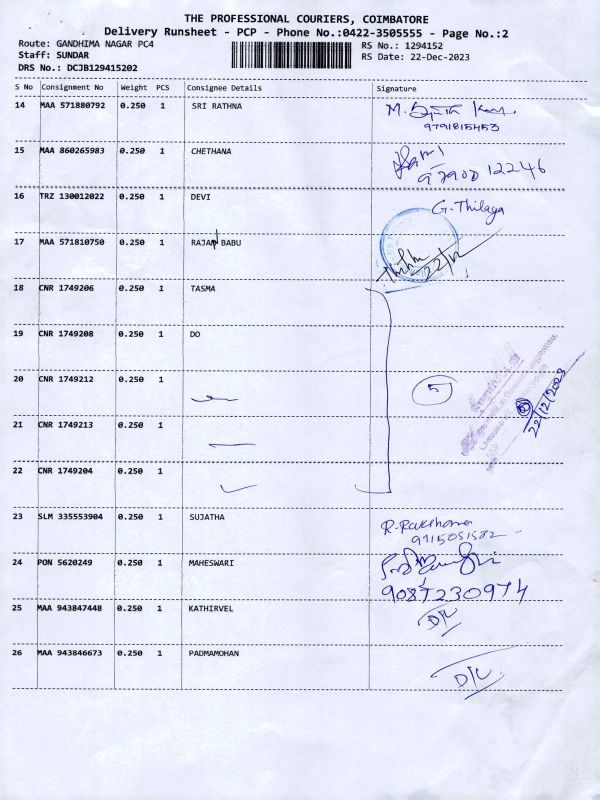 THE PROFESSIONAL COURIERS, COIMBATORE
Delivery Runsheet - PCP - Phone No.:0422-3505555 - Page No.:2
Route: GANDHIMA NAGAR PC4 RS No.: 1294152
Staff: SUNDAR RS Date: 22-Dec-2023
DRS No.: DCJB129415202
S No Consignment No Weight PCS Consignee Details Signature
14 MAA 571880792 0.250 1 SRI RATHNA
9791815453
15 MAA 860265983 0.250 1 CHETHANA
16 TRZ 130012022 0.250 1 DEVI G. Thilaga
17 MAA 571810750 0.250 1 RAJAN BABU
22/12
18 CNR 1749206 0.250 1 TASMA
19 CNR 1749208 0.250 1 DO
20 CNR 1749212 0.250 1
5
22/12/2023
21 CNR 1749213 0.250 1
22 CNR 1749204 0.250 1
23 SLM 335553904 0.250 1 SUJATHA R-Rakshana
24 PON 5620249 0.250 1 MAHESWARI
9087230974
25 MAA 943847448 0.250 1 KATHIRVEL D/L
26 MAA 943846673 0.250 1 PADMAMOHAN D/L